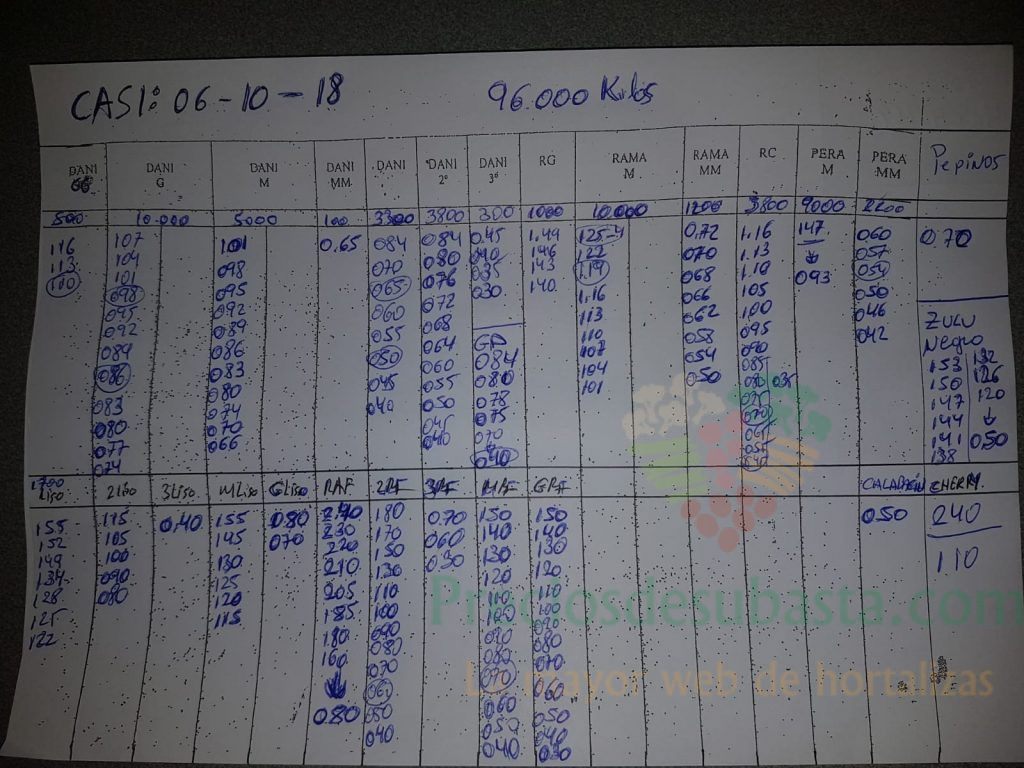 CASI: 06-10-18 96.000 Kilos
DANI DANI G DANI M DANI MM DANI DANI 2ª DANI 3ª RG RAMA M RAMA MM RC PERA M PERA MM PEPINOS
500 10.000 5000 100 3300 3800 300 1000 10.000 1200 3800 9000 2200
116 107 101 0.65 084 084 0.45 1.49 125-4 0.72 1.16 147 060 070
113 104 098 070 080 040 146 122 070 1.13 057
100 101 095 065 076 035 143 1.19 068 1.10 093 054
098 092 060 072 030 140 1.16 066 105 050
095 089 055 068 113 062 100 046 ZULU
092 086 050 064 GR 110 058 095 042 Negro
089 083 045 060 084 107 054 090 153 132
086 080 040 055 080 104 050 085 150 126
083 074 050 078 101 080 147 120
080 070 045 075 075 144
077 066 040 070 070 141 050
074 040 138
1700
Liso 2Liso 3Liso MLiso GLiso RAF 2RF 3RF MRF GRF CALABACIN CHERRY
155 115 0.40 155 080 240 180 0.70 150 150 050 240
152 105 145 070 230 170 060 140 140
149 100 130 220 150 030 130 130 110
134 090 125 210 130 120 120
128 080 120 205 110 110 110
125 115 185 100 100 100
122 180 090 090 090
160 080 080 080
070 070 070
080 060 060 060
050 050 050
040 040 040
030
Preciosdesubasta.com
La mayor web de hortalizas